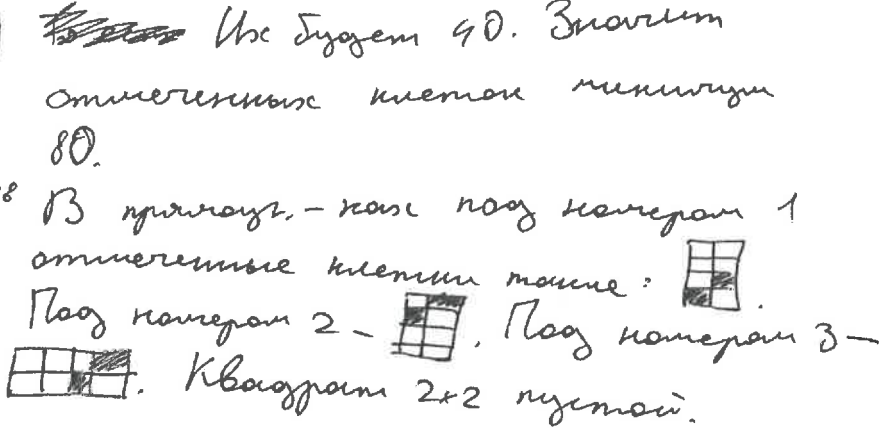 Их будет 40. Значит
отмеченных клеток минимум
80.
В прямоуг.-ках под номером 1
отмеченные клетки такие:
Под номером 2 - . Под номером 3 -
. Квадрат 2×2 пустой.